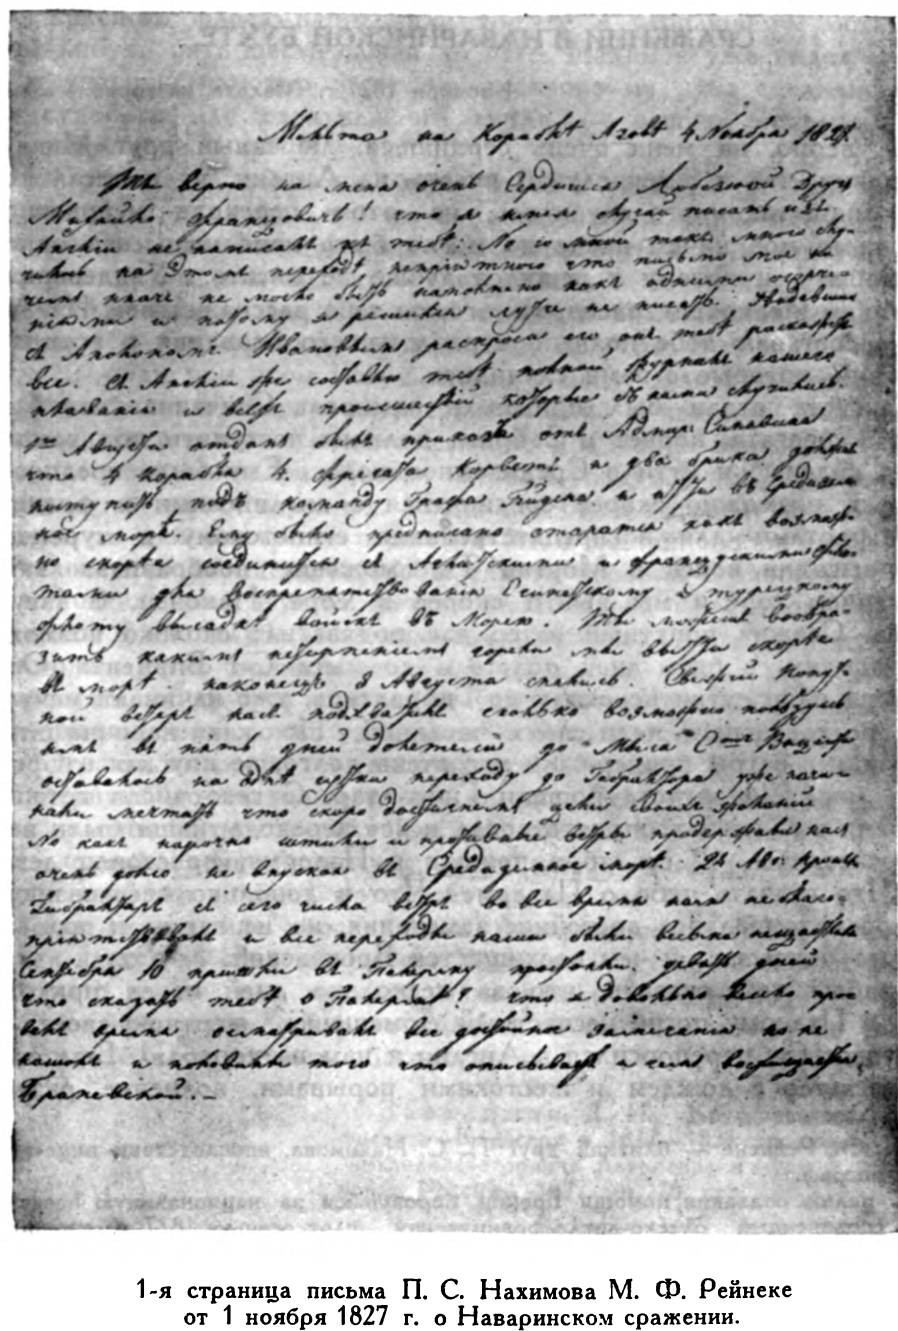 Мальта на Корабле Азове 4 Ноября 1827.
Ты верно на меня очень Сердишся Любезной Друг
Михайло Францовичь! что я имея случай писать изъ
Англіи не написалъ къ тебѣ: Но со мной такъ много слу-
чилось на этомъ переходѣ непріятного что письмо мое ни
чемъ иначе не могло быть наполнено какъ одними огорче-
ніями и потому я решился лучше не писать.
съ Ивановымъ распроси его онъ тебѣ раскажетъ
все. Съ Англіи же составлю тебѣ полной Журналъ нашего
плаванія и всехъ происшествій которые съ нами случились.
1го Августа отданъ былъ приказъ отъ Адмир: Синявина
что 4 Корабля 4 фрегата Корветъ и два брика должны
поступить подъ команду Графа Гейдена и итти въ Средизем
ное морѣ. Ему было предписано старатся какъ возмож-
но скорѣе соединится съ Аглинскими и французскими фло-
тами для воспрепятствованія Египетскому и турецкому
флоту высадкѣ войскъ въ Морею. Ты можешь вообра-
зить какимъ нетерпеніемъ горели мы вытти скорѣе
въ морѣ. наконецъ 8 Августа снялись. Свежій попут-
ной ветеръ насъ подхватилъ сколько возможно
въ пять дней долетели до Мыса Сент Винцента
оставалось на одни сутки переходу до Гибралтара уже начи-
нали мечтать что скоро достигнемъ цели своихъ желаній
Но какъ нарочно штили и противные ветры продержали насъ
очень долго не впуская въ Средиземное морѣ. 24 Авг: прошли
Гибралтаръ съ сего числа ветръ во все время намъ не благо-
пріятствовалъ и все переходы наши были весьма нещастливы
Сентября 10 пришли въ Палерму простояли девять дней
что сказать тебѣ о Палермѣ? что я довольно весело про
велъ время осматривалъ все достойное замечанія но не
нашолъ и половины того что описываетъ и чемъ восхищается
Броневской. –
1-я страница письма П. С. Нахимова М. Ф. Рейнеке
от 1 ноября 1827 г. о Наваринском сражении.